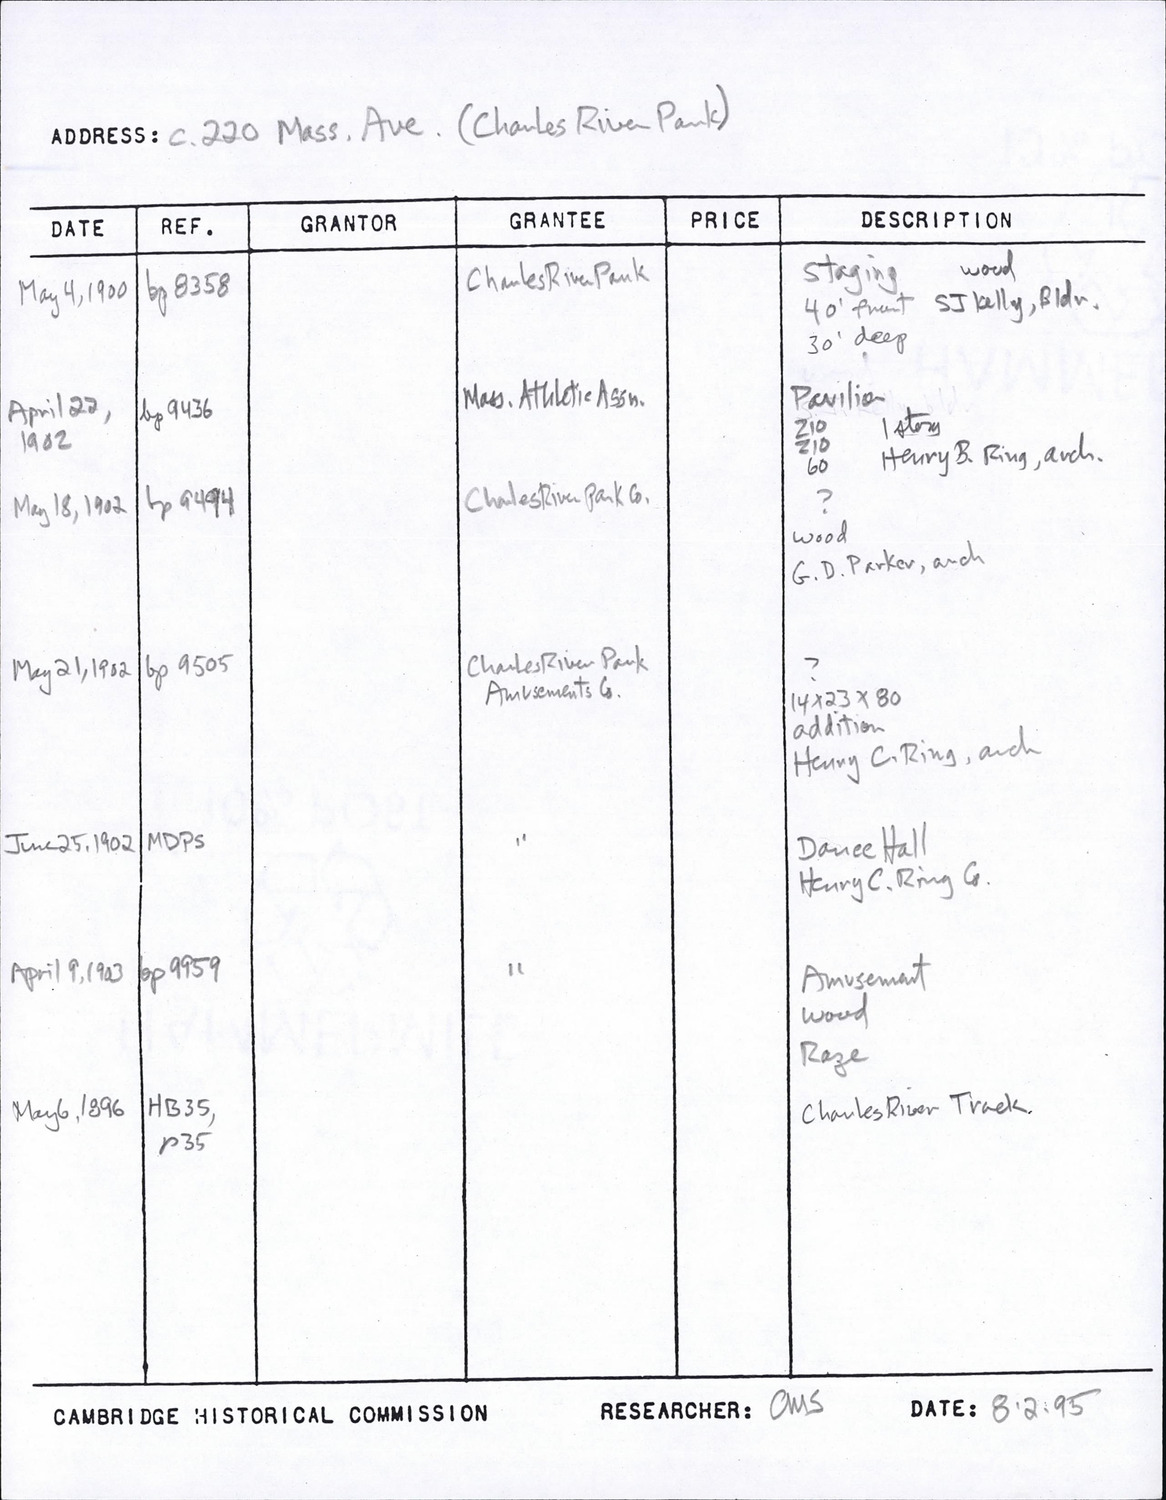 ADDRESS: c. 220 Mass. Ave. (Charles River Park)
DATE REF. GRANTOR GRANTEE PRICE DESCRIPTION
May 4, 1900 bp 8358 Charles River Park staging wood
40' front SJ Kelly, Bldr.
30' deep
April 22, bp 9436 Mass. Athletic Assn. Pavilion
1902 210 1 story
210
60 Henry B. Ring, arch.
May 18, 1902 bp 9494 Charles River Park Co. ?
wood
G. D. Parker, arch
May 21, 1902 bp 9505 Charles River Park ?
Amusements Co. 14x23x80
addition
Henry C. Ring, arch
June 25, 1902 MDPs " Dance Hall
Henry C. Ring Co.
April 9, 1903 bp 9959 " Amusement
Wood
Raze
May 6, 1896 HB35, Charles River Track.
p35
CAMBRIDGE HISTORICAL COMMISSION RESEARCHER: DATE: 8.2.95